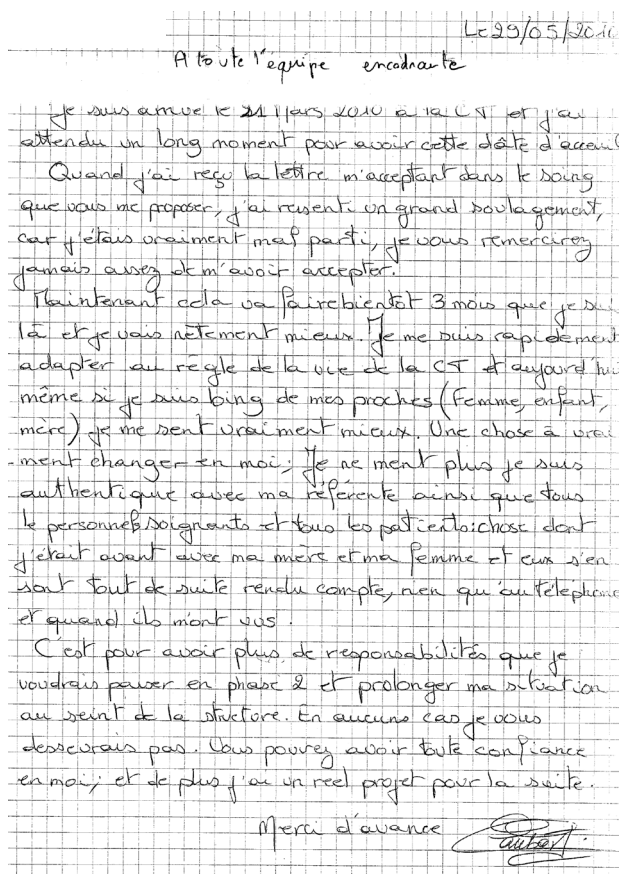 Le 29/05/2010
A toute l'équipe encadrante
Je suis arrivé le 21 Mars 2010 à la CT et j'ai
attendu un long moment pour avoir cette dâte d'accueil
Quand j'ai reçu la lettre m'acceptant dans le soing
que vous me proposer, j'ai ressenti un grand soulagement,
car j'étais vraiment mal parti, je vous remercirez
jamais assez de m'avoir accepter.
Maintenant cela va faire bientot 3 mois que je suis
là et je vais nêtement mieux. Je me suis rapidement
adapter au régle de la vie de la CT et aujourd'hui
même si je suis loing de mes proches (femme, enfant,
mère) je me sent vraiment mieux. Une chose à vrai
-ment changer en moi; Je ne ment plus je suis
authentique avec ma référente ainsi que tous
le personnels soignants et tous les patients: chose dont
j'était avant avec ma mère et ma femme et eux s'en
sont tout de suite rendu compte, rien qu'au téléphone
et quand ils m'ont vus.
C'est pour avoir plus de responsabilités que je
voudrais passer en phase 2 et prolonger ma situation
au seint de la structure. En aucuns cas je vous
desseurais pas. Vous pouvez avoir toute confiance
en moi; et de plus j'ai un réel projet pour la suite.
Merci d'avance